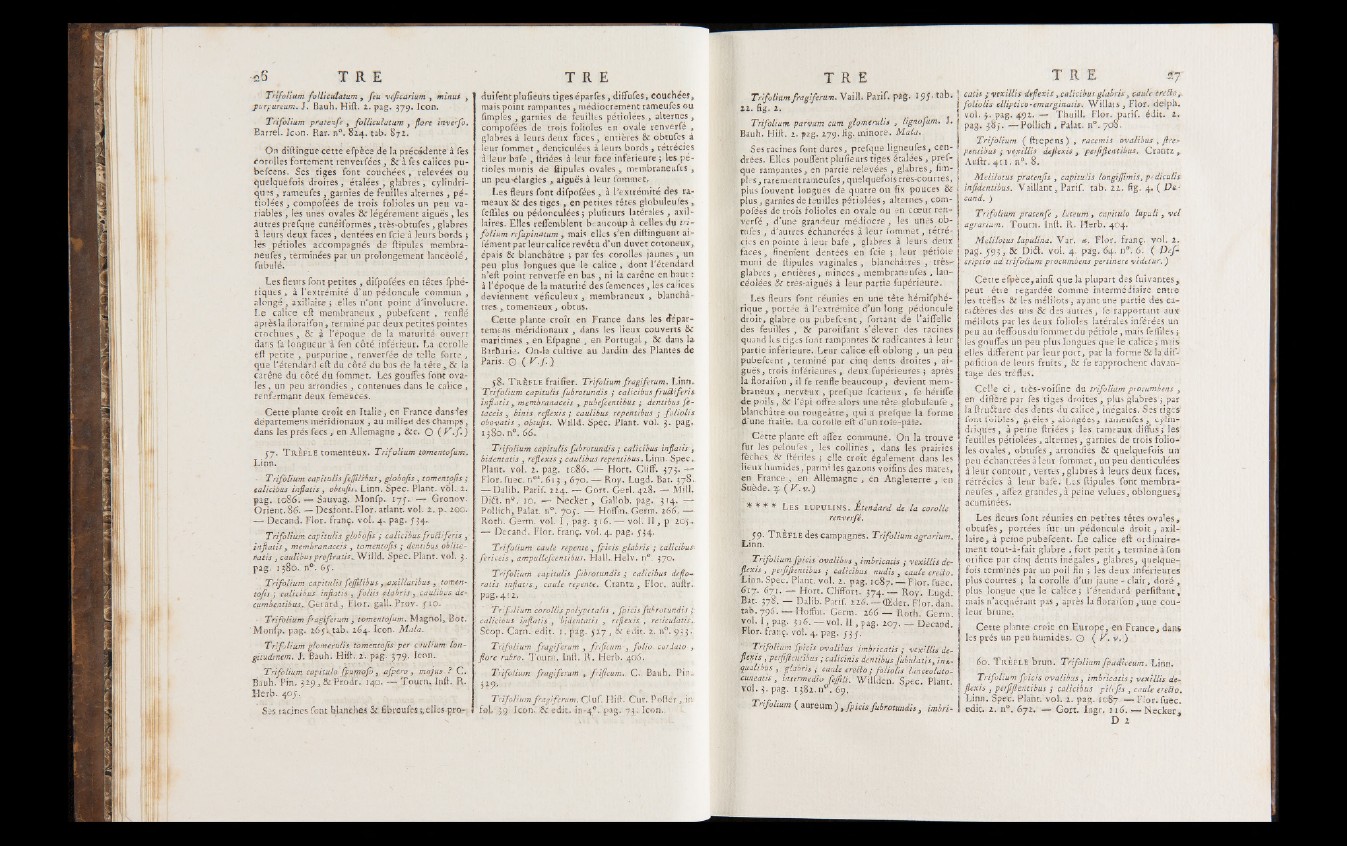 26 T R E
Trifolium folliculatum, seu vesicarium, minus,
purpureum. J. Bauh. Hist. 2. pag. 379. Icon.
Trifolium pratense, folliculatum, flore inverso.
Barrel. Icon. Rar. n°. 824. tab. 872.
On distingue cette espèce de la précédente à ses
corolles fortement renversées, & à ses calices pu-
bescens. Ses tiges font couchées, relevées ou
quelquefois droites, étalées, glabres, cylindri-
ques, rameuses, garnies de feuilles alternes, pé-
tiolées, composées de trois folioles un peu va-
riables, les unes ovales & légérement aiguës, les
autres presque cunéiformes, très-obtuses, glabres
à leurs deux faces, dentées en scie à leurs bords;
les pétioles accompagnés de stipules membra-
neuses, terminées par un prolongement lancéolé,
subulé.
Les fleurs sont petites, disposées en têtes sphé-
riques, à l'extrémité d'un pédoncule commun,
alongé, axillaire; elles n'ont point d'involucre.
Le calice est membraneux, pubescent, renflé
après la floraison, terminé par deux petites pointes
crochues, & à l'époque de la maturité ouvert
dans sa longueur à son côté inférieur. La corolle
est petite, purpurine, renversée de telle sorte,
que l'étendard est du côté du bas de la tête, & la
carène du côté du sommet. Les gousses sont ova-
les, un peu arrondies, contenues dans le calice,
renfermant deux semences.
Cette plante croît en Italie, en France dans les
départemens méridionaux, au milieu des champs,
dans les prés secs, en Allemagne, &c. ☉ (V. s.)
57. TRÈFLE tomenteux. Trifolium tomentosum.
Linn.
Trifolium capitulis sessilibus, globosis, tomentosis;
calicibus inflatis, obtusis. Linn. Spec. Plant. vol. 2.
pag. 1086. — Sauvag. Monsp. 175. — Gronov.
Orient. 86. — Desfont. Flor. atlant. vol. 2. p. 200.
— Decand. Flor. franç. vol. 4. pag. 534.
Trifolium capitulis globosis; calicibus fructiferis,
inflatis, membranaceis, tomentosis; dentibus oblite-
ratis, caulibus prostratis. Willd. Spec. Plant. vol. 3.
pag. 1380. n°. 65.
Trifolium capitulis sessilibus, axillaribus, tomen-
tosis; calicibus inflatis, foliis glabris, caulibus de-
cumbentibus. Gerard, Flor. gall. Prov. 510.
Trifolium fragiferum; tomentosum. Magnol, Bot.
Monsp. pag. 265. tab. 264. Icon. Mala.
Trifolium glomerulis tomentosis per caulium lon-
gitudinem. J. Bauh. Hist. 2. pag. 379. Icon.
Trifolium capitulo spumoso, aspero, majus? C.
Bauh. Pin. 329, & Prodr. 140. — Tourn. Inst. R.
Herb. 405.
Ses racines sont blanches & fibreuses; elles pro-
T R E
duisent plusieurs tiges éparses, diffuses, couchées,
mais point rampantes, médiocrement rameuses ou
simples, garnies de feuilles pétiolées, alternes,
composées de trois folioles en ovale renversé,
glabres à leurs deux faces, entières & obtuses à
leur sommet, denticulées à leurs bords, rétrécies
à leur base, striées à leur face inférieure; les pé-
tioles munis de stipules ovales, membraneuses,
un peu élargies, aiguës à leur sommet.
Les fleurs sont disposées, à l'extrémité des ra-
meaux & des tiges, en petites têtes globuleuses,
sessiles ou pédonculées; plusieurs latérales, axil-
laires. Elles ressemblent beaucoup à celles du tri-
folium resupinatum, mais elles s'en distinguent ai-
sément par leur calice revêtu d'un duvet cotoneux,
épais & blanchâtre; par ses corolles jaunes, un
peu plus longues que le calice, dont l'étendard
n'est point renversé en bas, ni la carène en haut:
à l'époque de la maturité des semences, les calices
deviennent vésiculeux, membraneux, blanchâ-
tres, tomenteux, obtus.
Cette plante croît en France dans les dépar-
temens méridionaux, dans les lieux couverts &
maritimes, en Espagne, en Portugal, & dans la
Barbarie. On la cultive au Jardin des Plantes de
Paris. ☉ (V. s.)
58. TRÈFLE fraisier. Trifolium fragiferum. Linn.
Trifolium capitulis subrotundis; calicibus fructiferis
inflatis, membranaceis, pubescentibus; dentibus se-
taceis, binis reflexis; caulibus repentibus; foliolis
obovatis, obtusis. Willd. Spec. Plant. vol. 3. pag.
1380. n°. 66.
Trifolium capitulis subrotundis; calicibus inflatis,
bidentatis, reflexis; caulibus repentibus. Linn. Spec.
Plant. vol. 2. pag. 1086. — Hort. Cliff. 373. —
Flor. suec. nos. 613, 670. — Roy. Lugd. Bat. 378.
— Dalib. Paris. 224. — Gort. Gerl. 428. — Mill.
Dict. n°. 10. — Necker, Gallob. pag. 314. —
Pollich, Palat. n°. 705. — Hoffm. Germ. 266. —
Roth. Germ. vol. I, pag. 316. — vol. II, p 205.
— Decand. Flor. franç. vol. 4. pag. 534.
Trifolium caule repente, spicis glabris; calicibus
sericeis, ampullescentibus. Hall. Helv. n°. 370.
Trifolium capitulis subrotundis; calicibus deflo-
ratis inflatis, caule repente. Crantz, Flor. austr.
pag. 412.
Trifolium corollis polypetalis, spicis subrotundis;
calicibus inflatis, bidentatis, reflexis, reticulatis.
Scop. Carn. edit. 1. pag. 527, & edit. 2. n°. 933.
Trifolium fragiferum, frisicum, folio cordato,
flore rubro. Tourn. Inst. R. Herb. 406.
Trifolium fragiferum, frisicum. C. Bauh. Pin.
329.
Trifolium fragiferum. Clus. Hist. Cur. Poster, in
fol. 39 Icon. & edit. in-4°. pag. 73. Icon.
T R E
Trifolium fragiferum. Vaill. Paris. pag. 195. tab.
22. fig. 2.
Trifolium parvum cum glomerulis, lignosum. J.
Bauh. Hist. 2. pag. 279. fig. minore. Mala.
Ses racines sont dures, presque ligneuses, cen-
drées. Elles poussent plusieurs tiges étalées, pres-
que rampantes, en partie relevées, glabres, sim-
ples, rarement rameuses, quelquefois très-courtes,
plus souvent longues de quatre ou six pouces &
plus, garnies de feuilles pétiolées, alternes, com-
posées de trois folioles en ovale ou en cœur ren-
versé, d'une grandeur médiocre, les unes ob-
tuses, d'autres échancrées à leur sommet, rétré-
cies en pointe à leur base, glabres à leurs deux
faces, finement dentées en scie; leur pétiole
muni de stipules vaginales, blanchâtres, très-
glabres, entières, minces, membraneuses, lan-
céolées & très-aiguës à leur partie supérieure.
Les fleurs sont réunies en une tête hémisphé-
rique, portée à l'extrémité d'un long pédoncule
droit, glabre ou pubescent, sortant de l'aisselle
des feuilles, & paroissant s'élever des racines
quand les tiges sont rampantes & radicantes à leur
partie inférieure. Leur calice est oblong, un peu
pubescent, terminé par cinq dents droites, ai-
guës, trois inférieures, deux supérieures; après
la floraison, il se renfle beaucoup, devient mem-
braneux, nerveux, presque scarieux, se hérisse
de poils, & l'épi offre alors une tête globuleuse,
blanchâtre ou rougeâtre, qui a presque la forme
d'une fraise. La corolle est d'un rose-pâle.
Cette plante est assez commune. On la trouve
sur les pelouses, les collines, dans les prairies
sèches & stériles; elle croît également dans les
lieux humides, parmi les gazons voisins des mares,
en France, en Allemagne, en Angleterre, en
Suède. ♃ (V. v.)
**** LES LUPULINS. Étendard de la corolle
renversé.
59. TRÈFLE des campagnes. Trifolium agrarium.
Linn.
Trifolium spicis ovalibus, imbricatis; vexillis de-
flexis, persistentibus; calicibus nudis, caule erecto.
Linn. Spec. Plant. vol. 2. pag. 1087. — Flor. suec.
617. 671. — Hort. Cliffort. 374. — Roy. Lugd.
Bat. 378. — Dalib. Paris. 226. — Œder. Flor. dan.
tab. 796. — Hoffm. Germ. 266 — Roth. Germ.
vol. I, pag. 316. — vol. II, pag. 207. — Decand.
Flor. franç. vol. 4. pag. 535.
Trifolium spicis ovalibus imbricatis; vexillis de-
flexis, persistentibus; calicinis dentibus subulatis, inæ-
qualibus, glabris; caule erecto; foliolis lanceolato-
cuneatis, intermedio sessili. Willden. Spec. Plant.
vol. 3. pag. 1382. n°. 69.
Trifolium (aureum), spicis subrotundis, imbri-
T R E 27
catis; vexillis deflexis, calicibus glabris, caule erecto,
foliolis elliptico-emarginatis. Willars, Flor. delph.
vol. 3. pag. 492. — Thuill. Flor. paris. édit. 2.
pag. 385. — Pollich, Palat. n°. 708.
Trifolium (strepens), racemis ovalibus, stre-
pentibus; vexillis deflexis, persistentibus. Crantz,
Austr. 411. n°. 8.
Melilotus pratensis, capitulis longissimis, pediculis
insidentibus. Vaillant, Paris. tab. 22. fig. 4. (De-
cand.)
Trifolium pratense, luteum, capitulo lupuli, vel
agrarium. Tourn. Inst. R. Herb. 404.
Melilotus lupulina. Var. α. Flor. franç. vol. 2.
pag. 595, & Dict. vol. 4. pag. 64. n°. 6. (Des-
criptio ad trifolium procumbens pertinere videtur.)
Cette espèce, ainsi que la plupart des suivantes,
peut être regardée comme intermédiaire entre
les trèfles & les mélilots, ayant une partie des ca-
ractères des uns & des autres, se rapportant aux
mélilots par les deux folioles latérales insérées un
peu au dessous du sommet du pétiole, mais sessiles;
les gousses un peu plus longues que le calice; mais
elles diffèrent par leur port, par la forme & la dis-
position de leurs fruits, & se rapprochent davan-
tage des trèfles.
Celle ci, très-voisine du trifolium procumbens,
en diffère par ses tiges droites, plus glabres; par
la structure des dents du calice, inégales. Ses tiges
sont foibles, grêles, alongées, rameuses, cylin-
driques, à peine striées; les rameaux diffus; les
feuilles pétiolées, alternes, garnies de trois folio-
les ovales, obtuses, arrondies & quelquefois un
peu échancrées à leur sommet, un peu denticulées
à leur contour, vertes, glabres à leurs deux faces,
rétrécies à leur base. Les stipules sont membra-
neuses, assez grandes, à peine velues, oblongues,
acuminées.
Les fleurs sont réunies en petites têtes ovales,
obtuses, portées sur un pédoncule droit, axil-
laire, à peine pubescent. Le calice est ordinaire-
ment tout-à-fait glabre, fort petit, terminé à son
orifice par cinq dents inégales, glabres, quelque-
fois terminés par un poil fin; les deux inférieures
plus courtes; la corolle d'un jaune-clair, doré,
plus longue que le calice; l'étendard persistant,
mais n'acquérant pas, après la floraison, une cou-
leur brune.
Cette plante croît en Europe, en France, dans
les prés un peu humides. ☉ (V. v.)
60. TRÈFLE brun. Trifolium spadiceum. Linn.
Trifolium spicis ovalibus, imbricatis; vexillis de-
flexis, persistentibus; calicibus pilosis, caule erecto.
Linn. Spec. Plant. vol. 2. pag. 1087. — Flor. suec.
edit. 2. n°. 672. — Gort. Ingr. 116. — Necker,
D 2